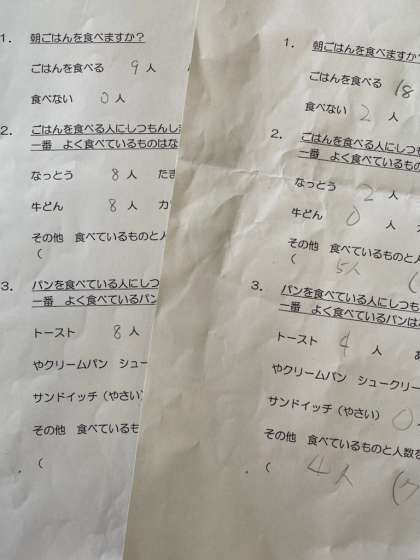 1. 朝ごはんを食べますか？
ごはんを食べる 9 人
食べない 0 人
2. ごはんを食べる人にしつもんし
一番 よく食べているものはな
なっとう 8 人 たま
牛どん 8 人 カ
その他 食べているものと人
(
3. パンを食べている人にしつ
一番 よく食べているパン
トースト 8 人
やクリームパン シュー
サンドイッチ（やさい）
その他 食べているも
(
1. 朝ごはんを食べますか？
ごはんを食べる 18
食べない 2 人
2. ごはんを食べる人にしつも
一番 よく食べているもの
なっとう 2 人
牛どん 0 人
その他 食べているものと人
( 5人 (
3. パンを食べている人にしつも
一番 よく食べているパンは
トースト 4 人
やクリームパン シュークリー
サンドイッチ（やさい） 0
その他 食べているものと人数を
( 4人 (